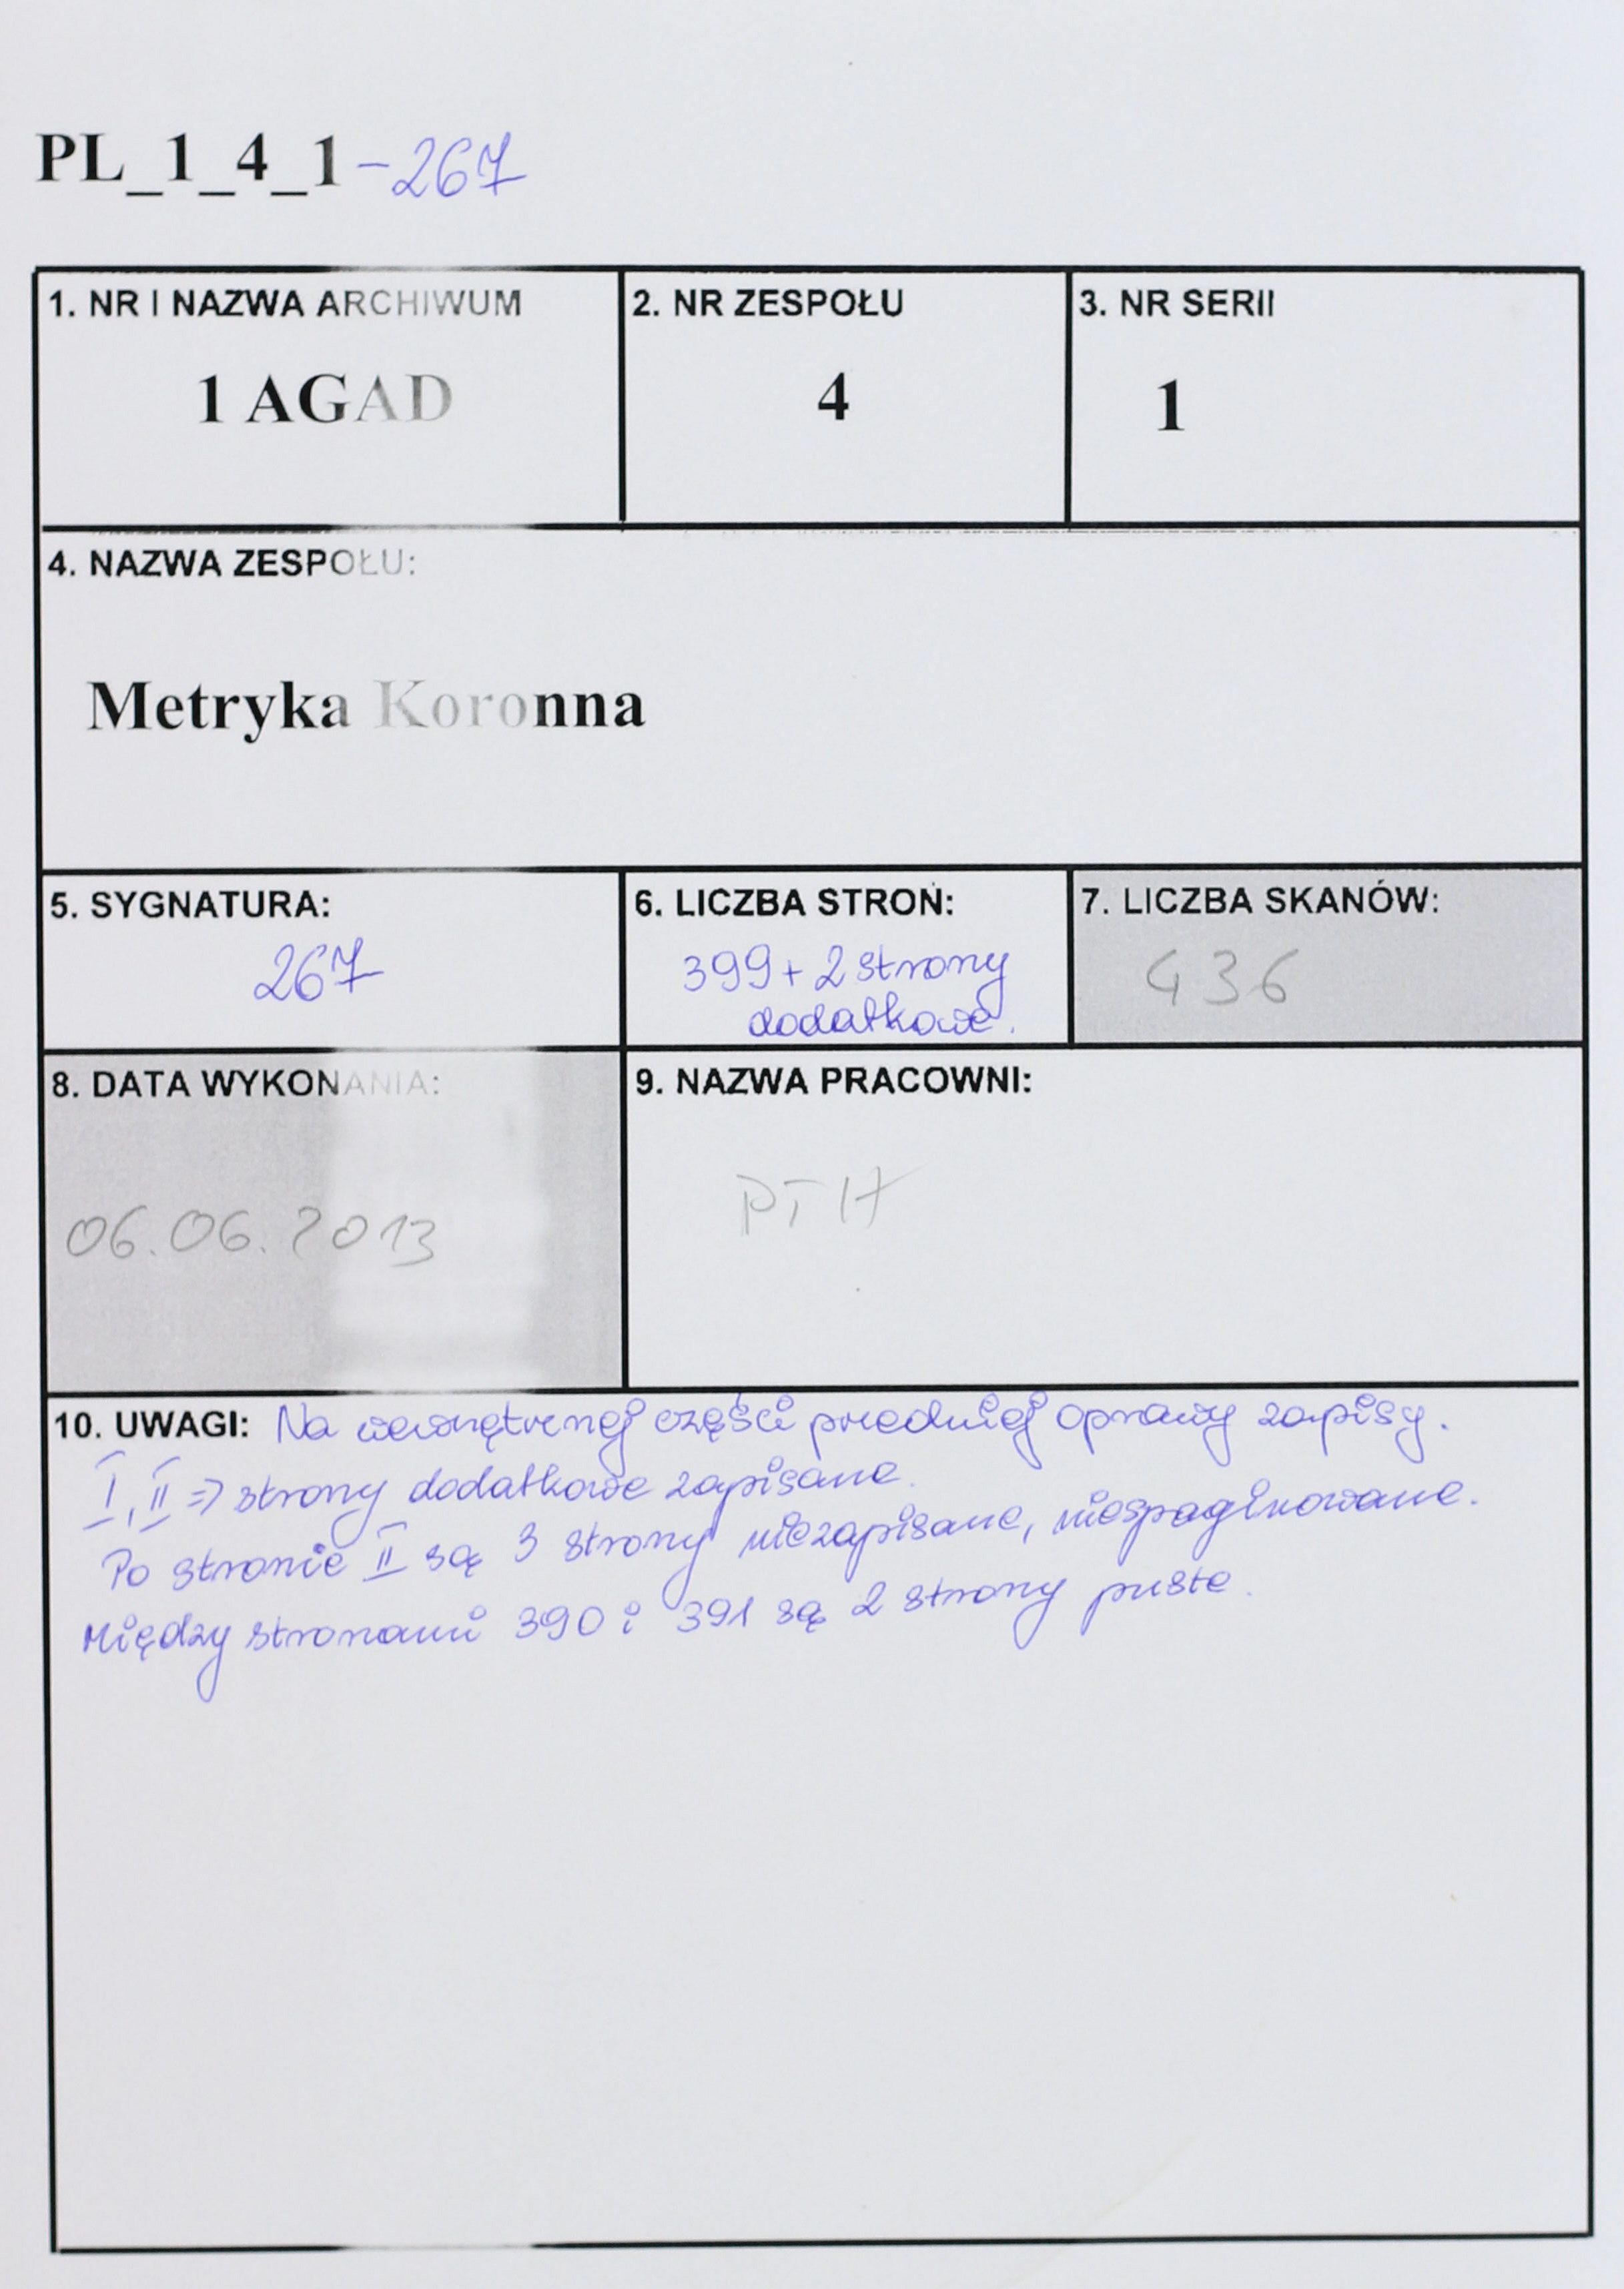 PL_1_4_1-267
1. NR I NAZWA ARCHIWUM
1 AGAD
2. NR ZESPOŁU
4
3. NR SERII
1
4. NAZWA ZESPOŁU:
Metryka Koronna
5. SYGNATURA:
267
6. LICZBA STRON:
399 + 2 strony
dodatkowe.
7. LICZBA SKANÓW:
436
8. DATA WYKONANIA:
06.06.2013
9. NAZWA PRACOWNI:
PTH
10. UWAGI: Na wewnętrznej części przedniej oprawy zapisy.
I, II => strony dodatkowe zapisane.
Po stronie II są 3 strony niezapisane, niespaginowane.
Między stronami 390 i 391 są 2 strony puste.